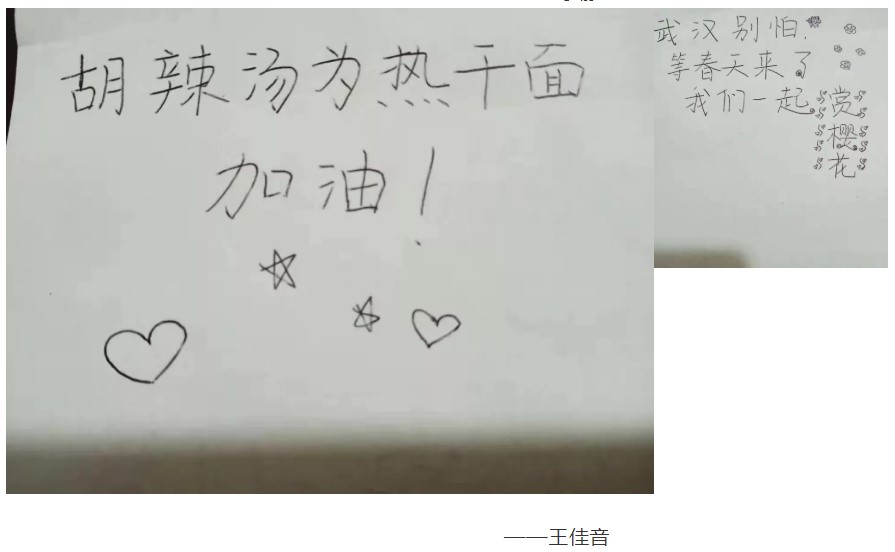 胡辣汤为热干面
加油！
武汉别怕,
等春天来了
我们一起
赏
樱
花
——王佳音